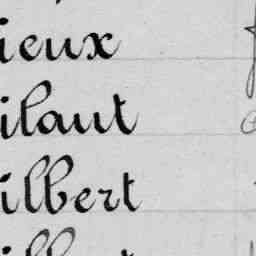 ieux
ilaut
ilbert